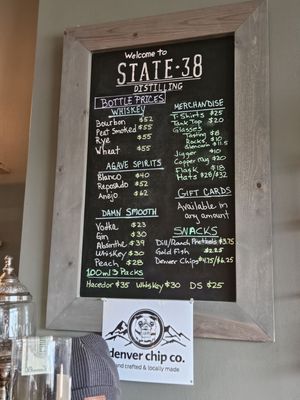 Welcome to
STATE·38
DISTILLING
BOTTLE PRICES
WHISKEY
Bourbon $52
Peat Smoked $55
Rye $55
Wheat $55
AGAVE SPIRITS
Blanco $40
Reposado $52
Anejo $62
DAMN SMOOTH
Vodka $23
Gin $30
Absinthe $39
Whiskey $30
Peach $28
100ml 3 Packs
Hacedor $35 Whiskey $30 DS $25
MERCHANDISE
T-Shirts $25
Tank Top $20
Glasses
Tasting $8
Rocks $10
Glencairn $11.5
Jigger $10
Copper Mug $20
Flask $18
Hats $28/$32
GIFT CARDS
Available in
any amount
SNACKS
Dill/Ranch Pretzels $3.75
Gold Fish $2.25
Denver Chips $4.75/$6.25
denver chip co.
hand crafted & locally made